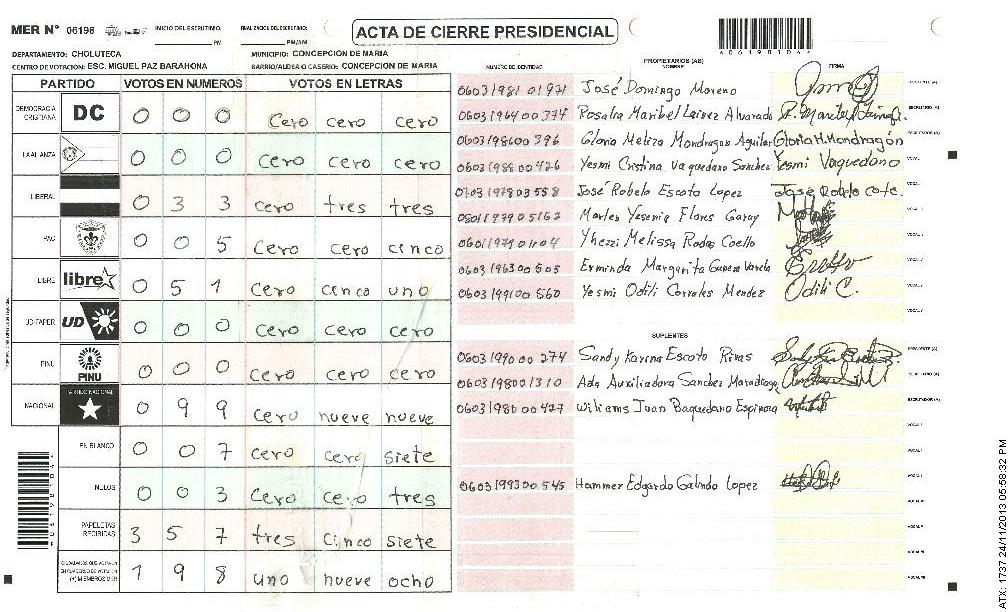 MER N° 06198 INICIO DEL ESCRUTINIO: PM FINALIZACION DEL ESCRUTINIO: PM/AM
ACTA DE CIERRE PRESIDENCIAL
DEPARTAMENTO: CHOLUTECA MUNICIPIO: CONCEPCION DE MARIA
CENTRO DE VOTACION: ESC. MIGUEL PAZ BARAHONA BARRIO/ALDEA O CASERIO: CONCEPCION DE MARIA
PARTIDO VOTOS EN NUMEROS VOTOS EN LETRAS
DEMOCRACIA CRISTIANA DC 0 0 0 cero cero cero
LA ALIANZA 0 0 0 cero cero cero
LIBERAL 0 3 3 cero tres tres
PAC 0 0 5 cero cero cinco
LIBRE libre 0 5 1 cero cinco uno
UD-FAPER UD 0 0 0 cero cero cero
PINU PINU 0 0 0 cero cero cero
NACIONAL PARTIDO NACIONAL 0 9 9 cero nueve nueve
EN BLANCO 0 0 7 cero cero siete
NULOS 0 0 3 cero cero tres
PAPELETAS RECIBIDAS 3 5 7 tres cinco siete
CIUDADANOS QUE VOTARON EN CUADERNO DE VOTACION (+) MIEMBROS MER 1 9 8 uno nueve ocho
NUMERO DE IDENTIDAD PROPIETARIOS (AS) NOMBRE FIRMA
0603 1981 01971 José Domingo Moreno
0603 1964 00 374 Rosalia Maribel Lainez Alvarado
0603 1986 00 396 Gloria Meliza Mondragon Aguilar Gloria M. Mondragón
0603 1988 00 426 Yesmi Cristina Vaquedano Sanchez Yesmi Vaquedano
0703 1978 03558 José Robelo Escoto Lopez José Robelo
0801 1979 05162 Marlen Yesenia Flores Garay
0601 1979 01104 Yhezzi Melissa Rodas Coello
0603 1963 00 505 Erminda Margarita
0603 1991 00 560 Yesmi Odili Corrales Mendez Odili C.
SUPLENTES
0603 1990 00 274 Sandy Karina Escoto Rivas
0603 1980 01310 Ada Auxiliadora Sanchez Maradiaga
0603 1980 00 427 Wiliams Juan Baquedano Espinoza
0603 1993 00 545 Hammer Edgardo Galindo Lopez
ATX: 1737 24/11/2013 05:58:32 PM